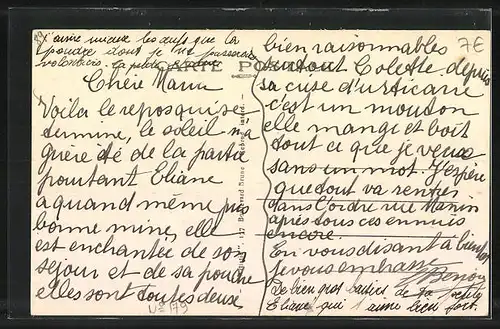 J'aime mieux les œufs que la
poudre dont je me passerais
volontiers. La petite
CARTE POSTALE
Chérie Mama
Voila le repos qui se
termine, le soleil n'a
guère été de la partie
pourtant Eliane
a quand même pris
bonne mine, elle
est enchantée de son
séjour et de sa
elles sont toutes deux
N° 179
7€
bien raisonnables
surtout Colette depuis
sa crise d'urticaire
c'est un mouton
elle mange et boit
tout ce que je veux
sans un mot. J'espère
que tout va rentrer
dans l'ordre rue Manin
après tous ces ennuis
encore.
En vous disant à bientôt
je vous embrasse
De bien gros baisers de ta petite
Eliane qui t'aime bien fort.